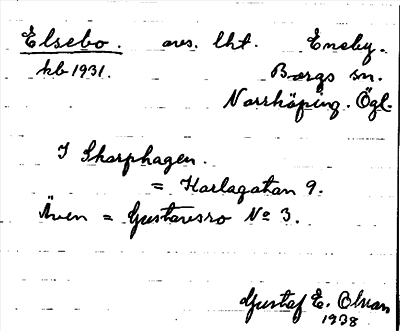 Elsebo. avs. lht. Eneby.
kb 1931. Borgs sn.
Norrköping. Ögl.
I Skarphagen.
= Karlagatan 9.
Även = Gustavsro No 3.
Gustaf E. Olvan
1938